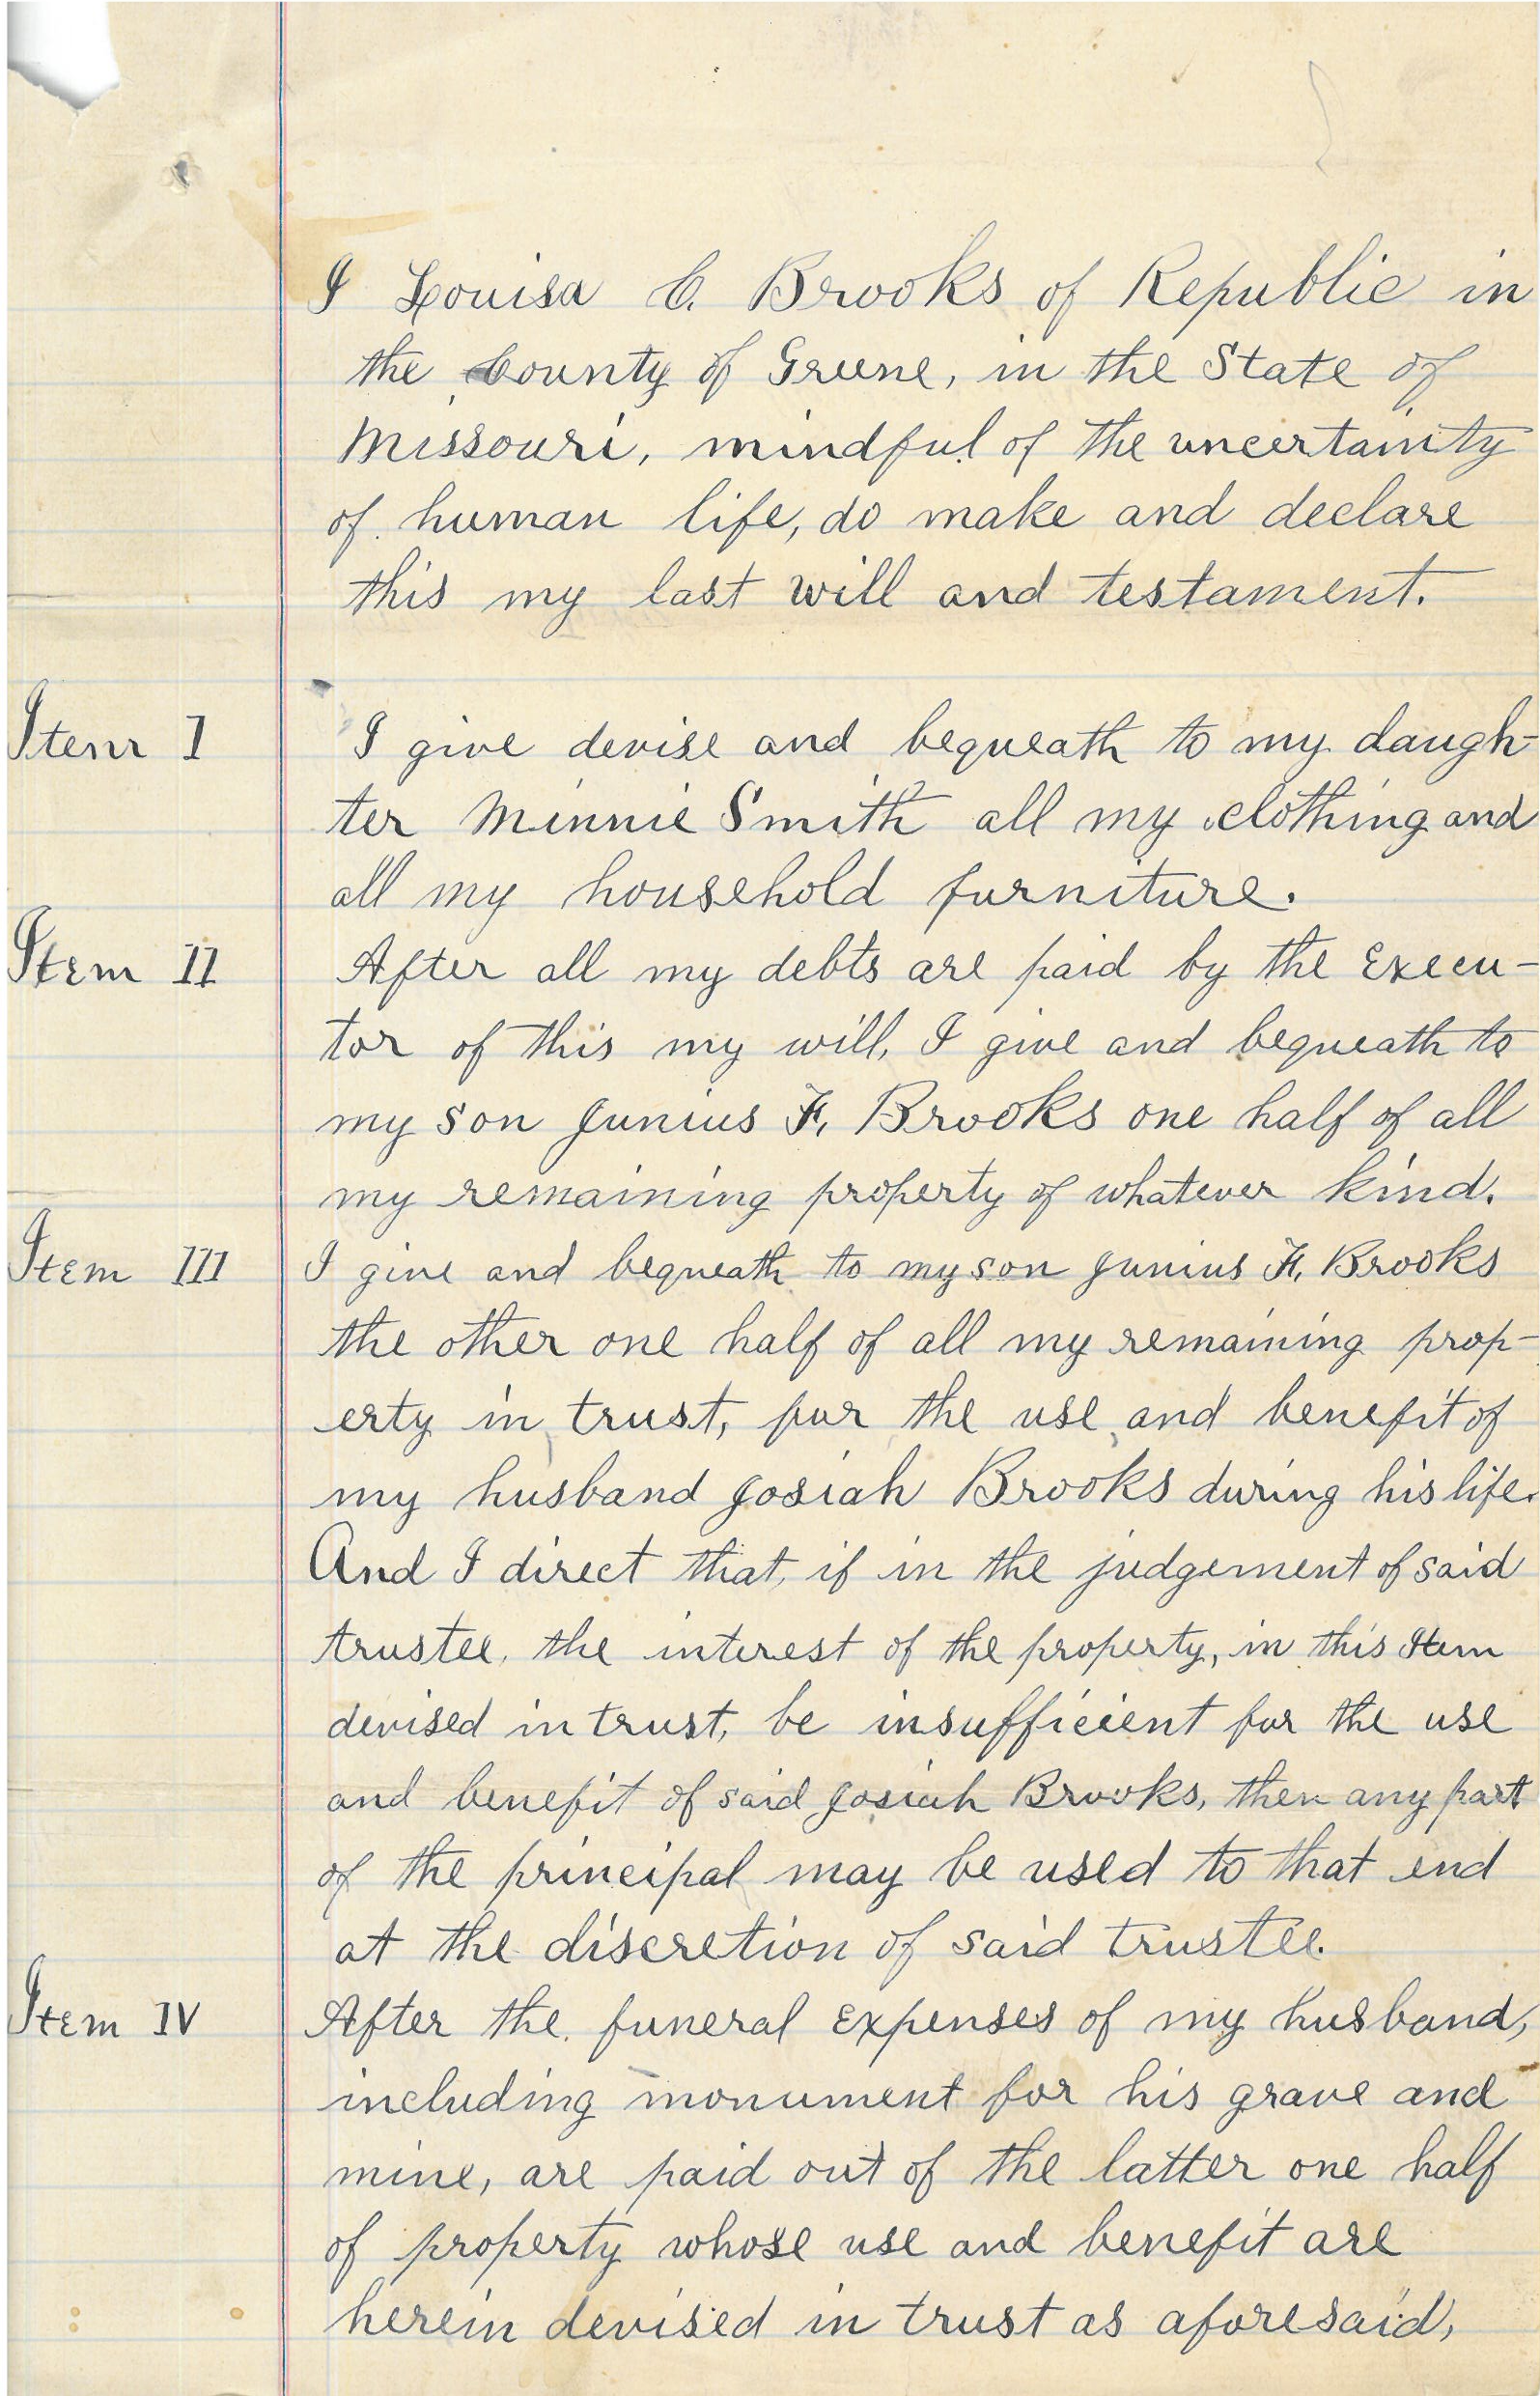 I Louisa C. Brooks of Republic in
the County of Greene, in the State of
Missouri, mindful of the uncertainity
of human life, do make and declare
this my last will and testament.
Item I I give devise and bequeath to my daugh-
ter Minnie Smith all my clothing and
all my household furniture.
Item II After all my debts are paid by the Execu-
tor of this my will, I give and bequeath to
my son Junius F. Brooks one half of all
my remaining property of whatever kind.
Item III I give and bequeath to my son Junius F. Brooks
the other one half of all my remaining prop-
erty in trust, for the use and benefit of
my husband Josiah Brooks during his life.
And I direct that, if in the judgement of said
trustee, the interest of the property, in this Item
devised in trust, be insufficient for the use
and benefit of said Josiah Brooks, then any part
of the principal may be used to that end
at the discretion of said trustee.
Item IV After the funeral expenses of my husband,
including monument for his grave and
mine, are paid out of the latter one half
of property whose use and benefit are
herein devised in trust as aforesaid,